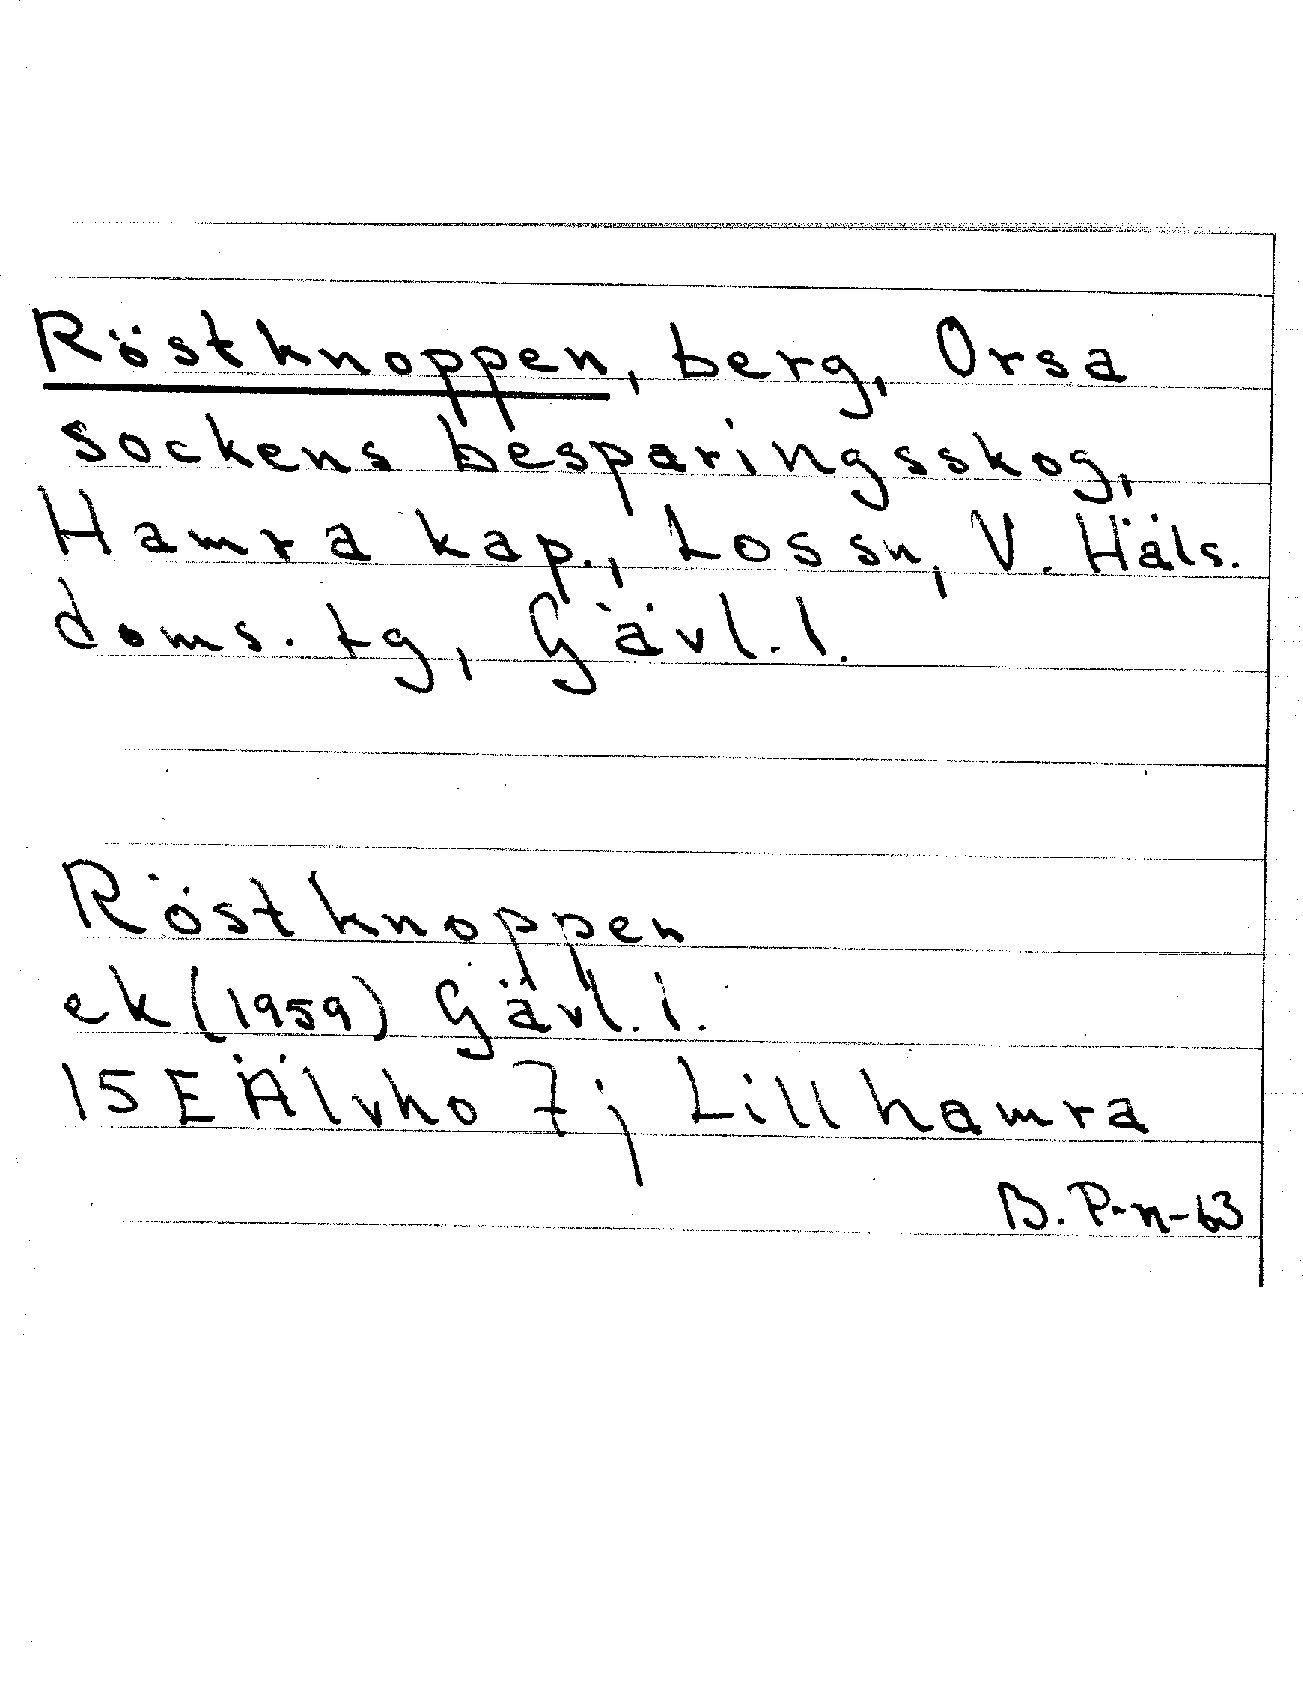 Röstknoppen, berg, Orsa
sockens besparingsskog,
Hamra kap., Los sn, V. Häls.
doms. tg, Gävl. l.
Röstknoppen
ek (1959) Gävl. l.
15 E Älvho 7; Lillhamra
B. P-n-63